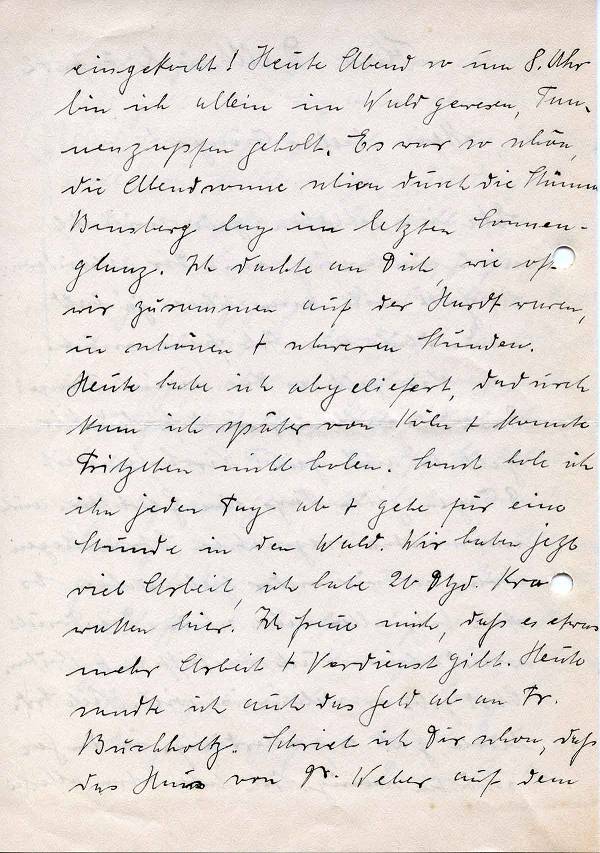 eingekocht! Heute Abend so um 8. Uhr
bin ich allein im Wald gewesen, Tan-
nenzapfen geholt. Es war so schön,
die Abendsonne schien durch die Stämme
Bensberg lag im letzten Sonnen-
glanz. Ich dachte an Dich, wie oft
wir zusammen auf der Hardt waren,
in schönen + schweren Stunden.
Heute habe ich abgeliefert, dadurch
kam ich später von Köln + konnte
Fritzchen nicht holen. Sonst hole ich
ihn jeden Tag ab + gehe für eine
Stunde in den Wald. Wir haben jetzt
viel Arbeit, ich habe 20 Dtzd. Kra
watten hier. Ich freue mich, daß es etwas
mehr Arbeit + Verdienst gibt. Heute
sandte ich auch das Geld ab an Fr.
Buchholtz. Schrieb ich Dir schon, daß
das Haus von Weber auf dem